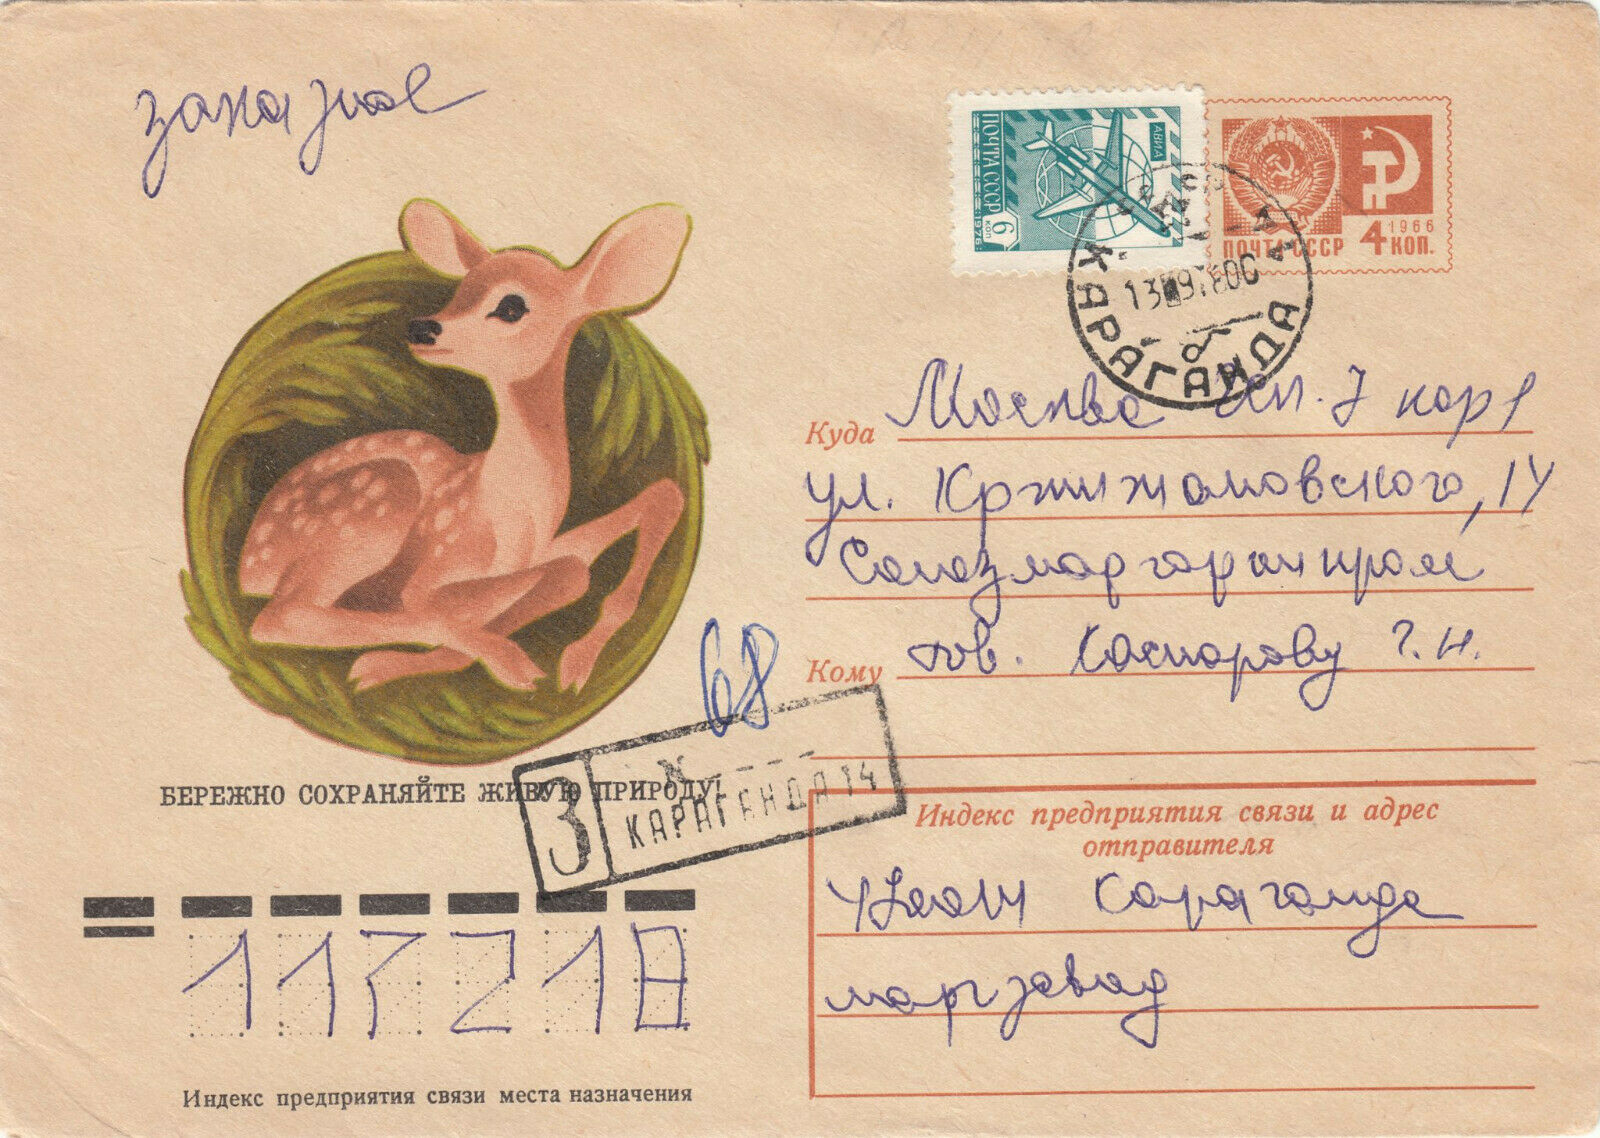 заказное
ПОЧТА СССР
АВИА
6 КОП
1976
1966
ПОЧТА СССР 4 КОП.
КАРАГАНДА
Куда Москва 7 корп
ул. Кржижановского, 14
Союзмаргаринпром
Кому тов. Каспарову Г. Н.
68
БЕРЕЖНО СОХРАНЯЙТЕ ЖИВУЮ ПРИРОДУ!
З
КАРАГАНДА 14
Индекс предприятия связи и адрес
отправителя
Караганда
маргзавод
113218
Индекс предприятия связи места назначения